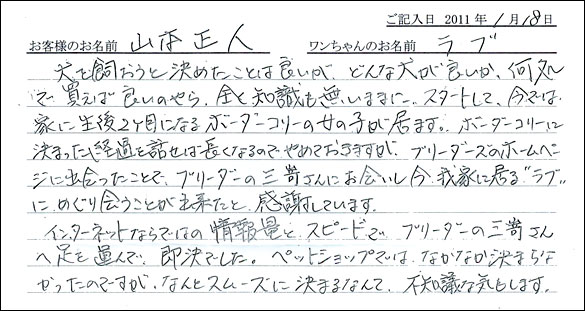 ご記入日 2011年 1月 18日
お客様のお名前 山本正人 ワンちゃんのお名前 ラブ
犬を飼おうと決めたことは良いが、どんな犬が良いか、何処
で買えば良いのやら、全く知識も無いままに、スタートして、今では、
家に生後2ヶ月になるボーダーコリーの女の子が居ます。ボーダーコリーに
決まった経過を話せば長くなるのでやめておきますが、ブリーダーズのホームペー
ジに出会ったことで、ブリーダーの三嵜さんにお会いし今、我家に居る"ラブ"
に、めぐり会うことが出来たと、感謝しています。
インターネットならではの情報量と、スピードで、ブリーダーの三嵜さん
へ足を運んで、即決でした。ペットショップでは、なかなか決まらな
かったのですが、なんとスムーズに決まるなんて、不知議な気もします。